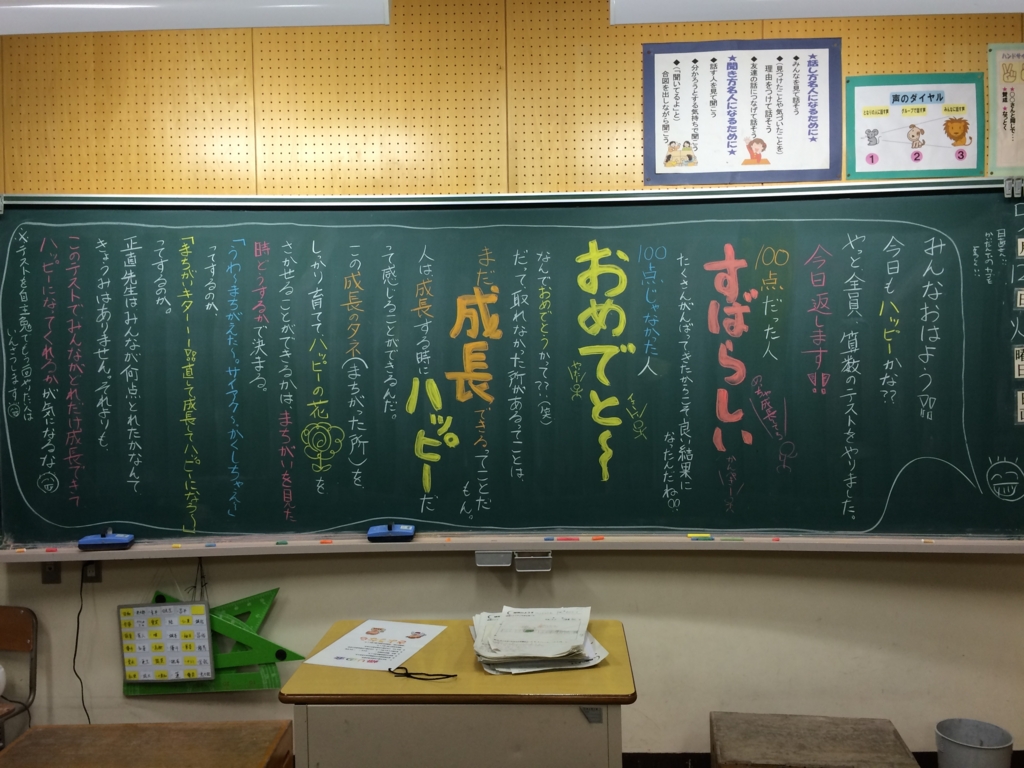 みんなおはよう
今日もハッピーかな??
やっと全員、算数のテストをやりました。
今日返します!!
100点だった人
すばらしい
たくさんがんばってきたからこそ良い結果に
なったんだね
100点じゃなかった人
おめでと〜
なんでおめでとうかって??(笑)
だって、取れなかった所があるってことは、
まだ成長できるってことだ
もん。
人は成長する時にハッピーだ
って感じることができるんだ。
この成長のタネ(まちがった所)を、
しっかり育ててハッピーの花を
さかせることができるかは、まちがいを見た
時どうするかで決まる。
「うわ、まちがえた〜。サイアク、かくしちゃえ〜」
ってするのか、
「まちがいキター!!直して成長してハッピーになろう〜」
ってするのか。
正直先生はみんなが何点とれたかなんて
きょうみはありません。それよりも、
このテストでみんながどれだけ成長できて
ハッピーになってくれるかが気になるな
★話し方名人になるために★
◆みんなを見て話そう
◆(見つけたことや気づいたことを)
理由をつけて話そう
◆友達の話につなげて話そう
★聞き方名人になるために★
◆話す人を見て聞こう
◆分かろうとする気持ちで聞こう
◆(「聞いてるよ」と)
合図を出しながら聞こう
声のダイヤル
1
2
3
火
曜日